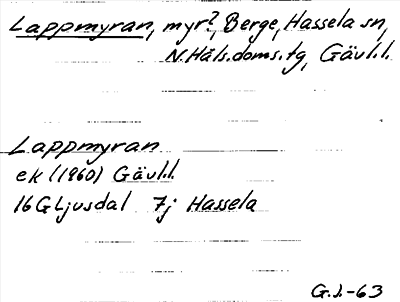 Lappmyran, myr?, Berge, Hassela sn,
N. Häls. doms. tg, Gävl.l.
Lappmyran
ek (1960) Gävl.l.
16G Ljusdal 7j Hassela
G.J.-63